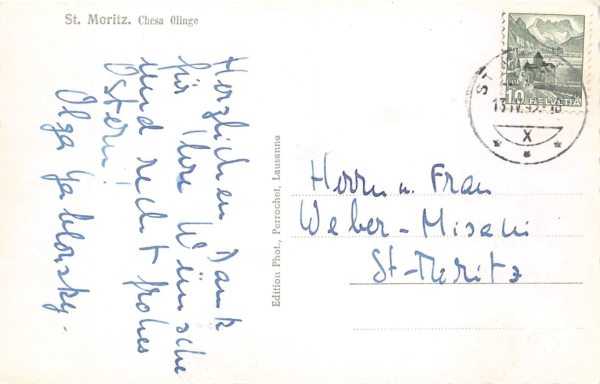 St. Moritz. Chesa Olinge
Herzlichen Dank
für Ihre Wünsche
und recht frohes
Ostern!
Olga Jablonsky.
Edition Phot., Perrochet, Lausanne
10 HELVETIA
X
Herrn u. Frau
Weber-Misani
St-Moritz